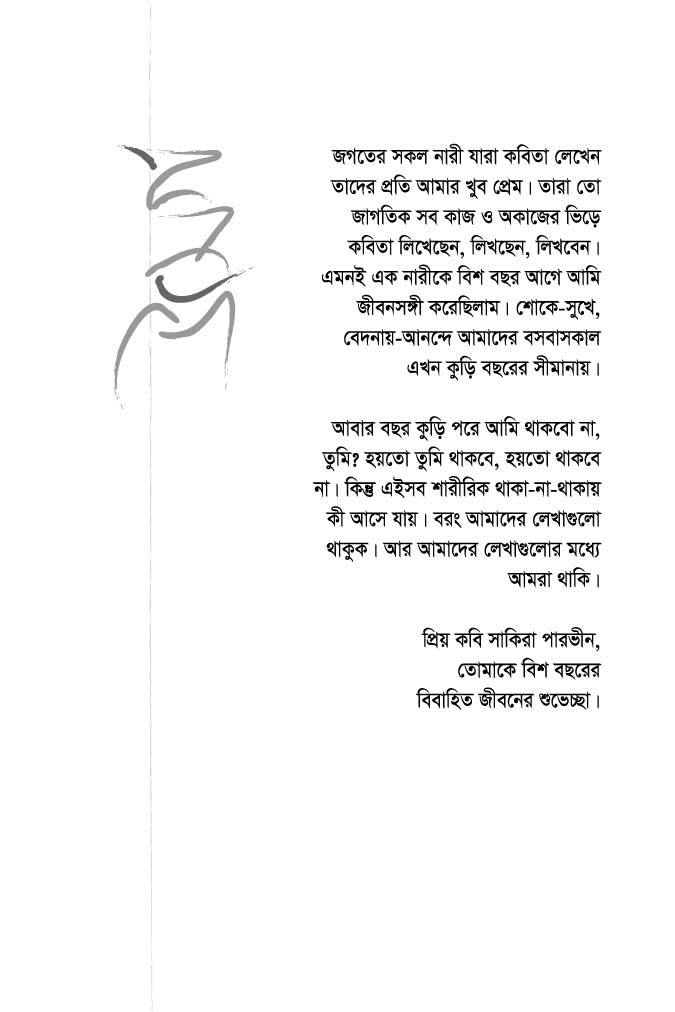 জগতের সকল নারী যারা কবিতা লেখেন
তাদের প্রতি আমার খুব প্রেম। তারা তো
জাগতিক সব কাজ ও অকাজের ভিড়ে
কবিতা লিখেছেন, লিখছেন, লিখবেন।
এমনই এক নারীকে বিশ বছর আগে আমি
জীবনসঙ্গী করেছিলাম। শোকে-সুখে,
বেদনায়-আনন্দে আমাদের বসবাসকাল
এখন কুড়ি বছরের সীমানায়।
আবার বছর কুড়ি পরে আমি থাকবো না,
তুমি? হয়তো তুমি থাকবে, হয়তো থাকবে
না। কিন্তু এইসব শারীরিক থাকা-না-থাকায়
কী আসে যায়। বরং আমাদের লেখাগুলো
থাকুক। আর আমাদের লেখাগুলোর মধ্যে
আমরা থাকি।
প্রিয় কবি সাকিরা পারভীন,
তোমাকে বিশ বছরের
বিবাহিত জীবনের শুভেচ্ছা।